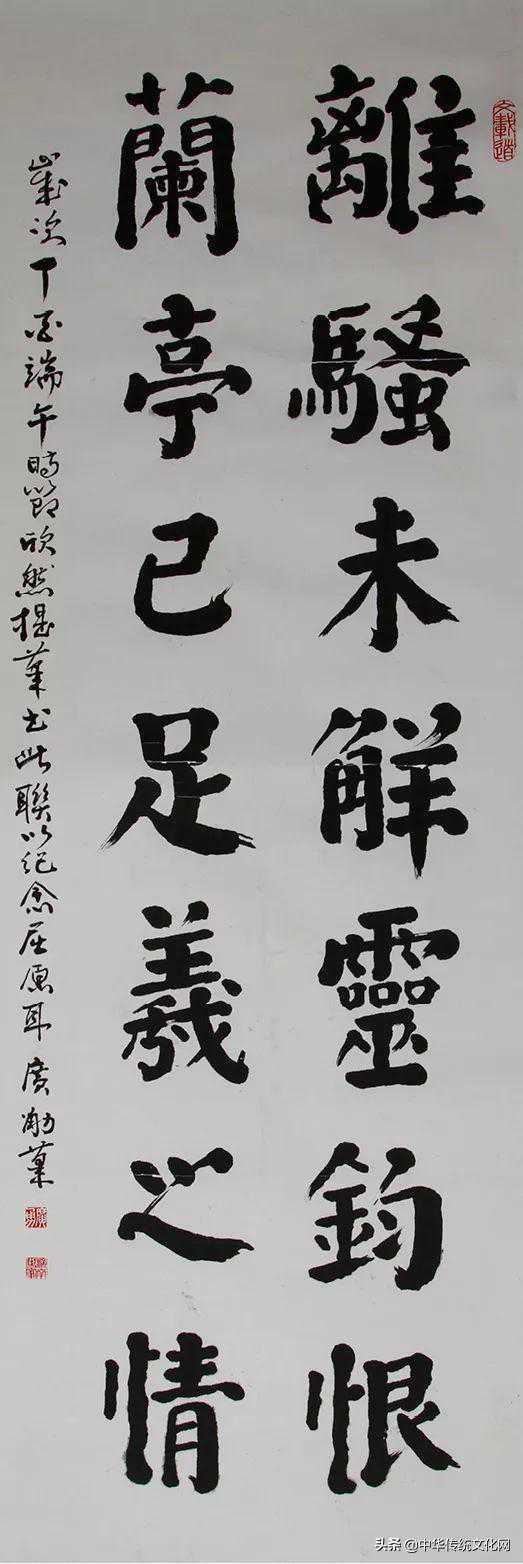 離騷未解靈鈞恨
蘭亭已足羲之情
歲次丁酉端午時節欣然提筆書此聯以紀念屈原耳 廣勛筆
文載道
头条 @中华传统文化网